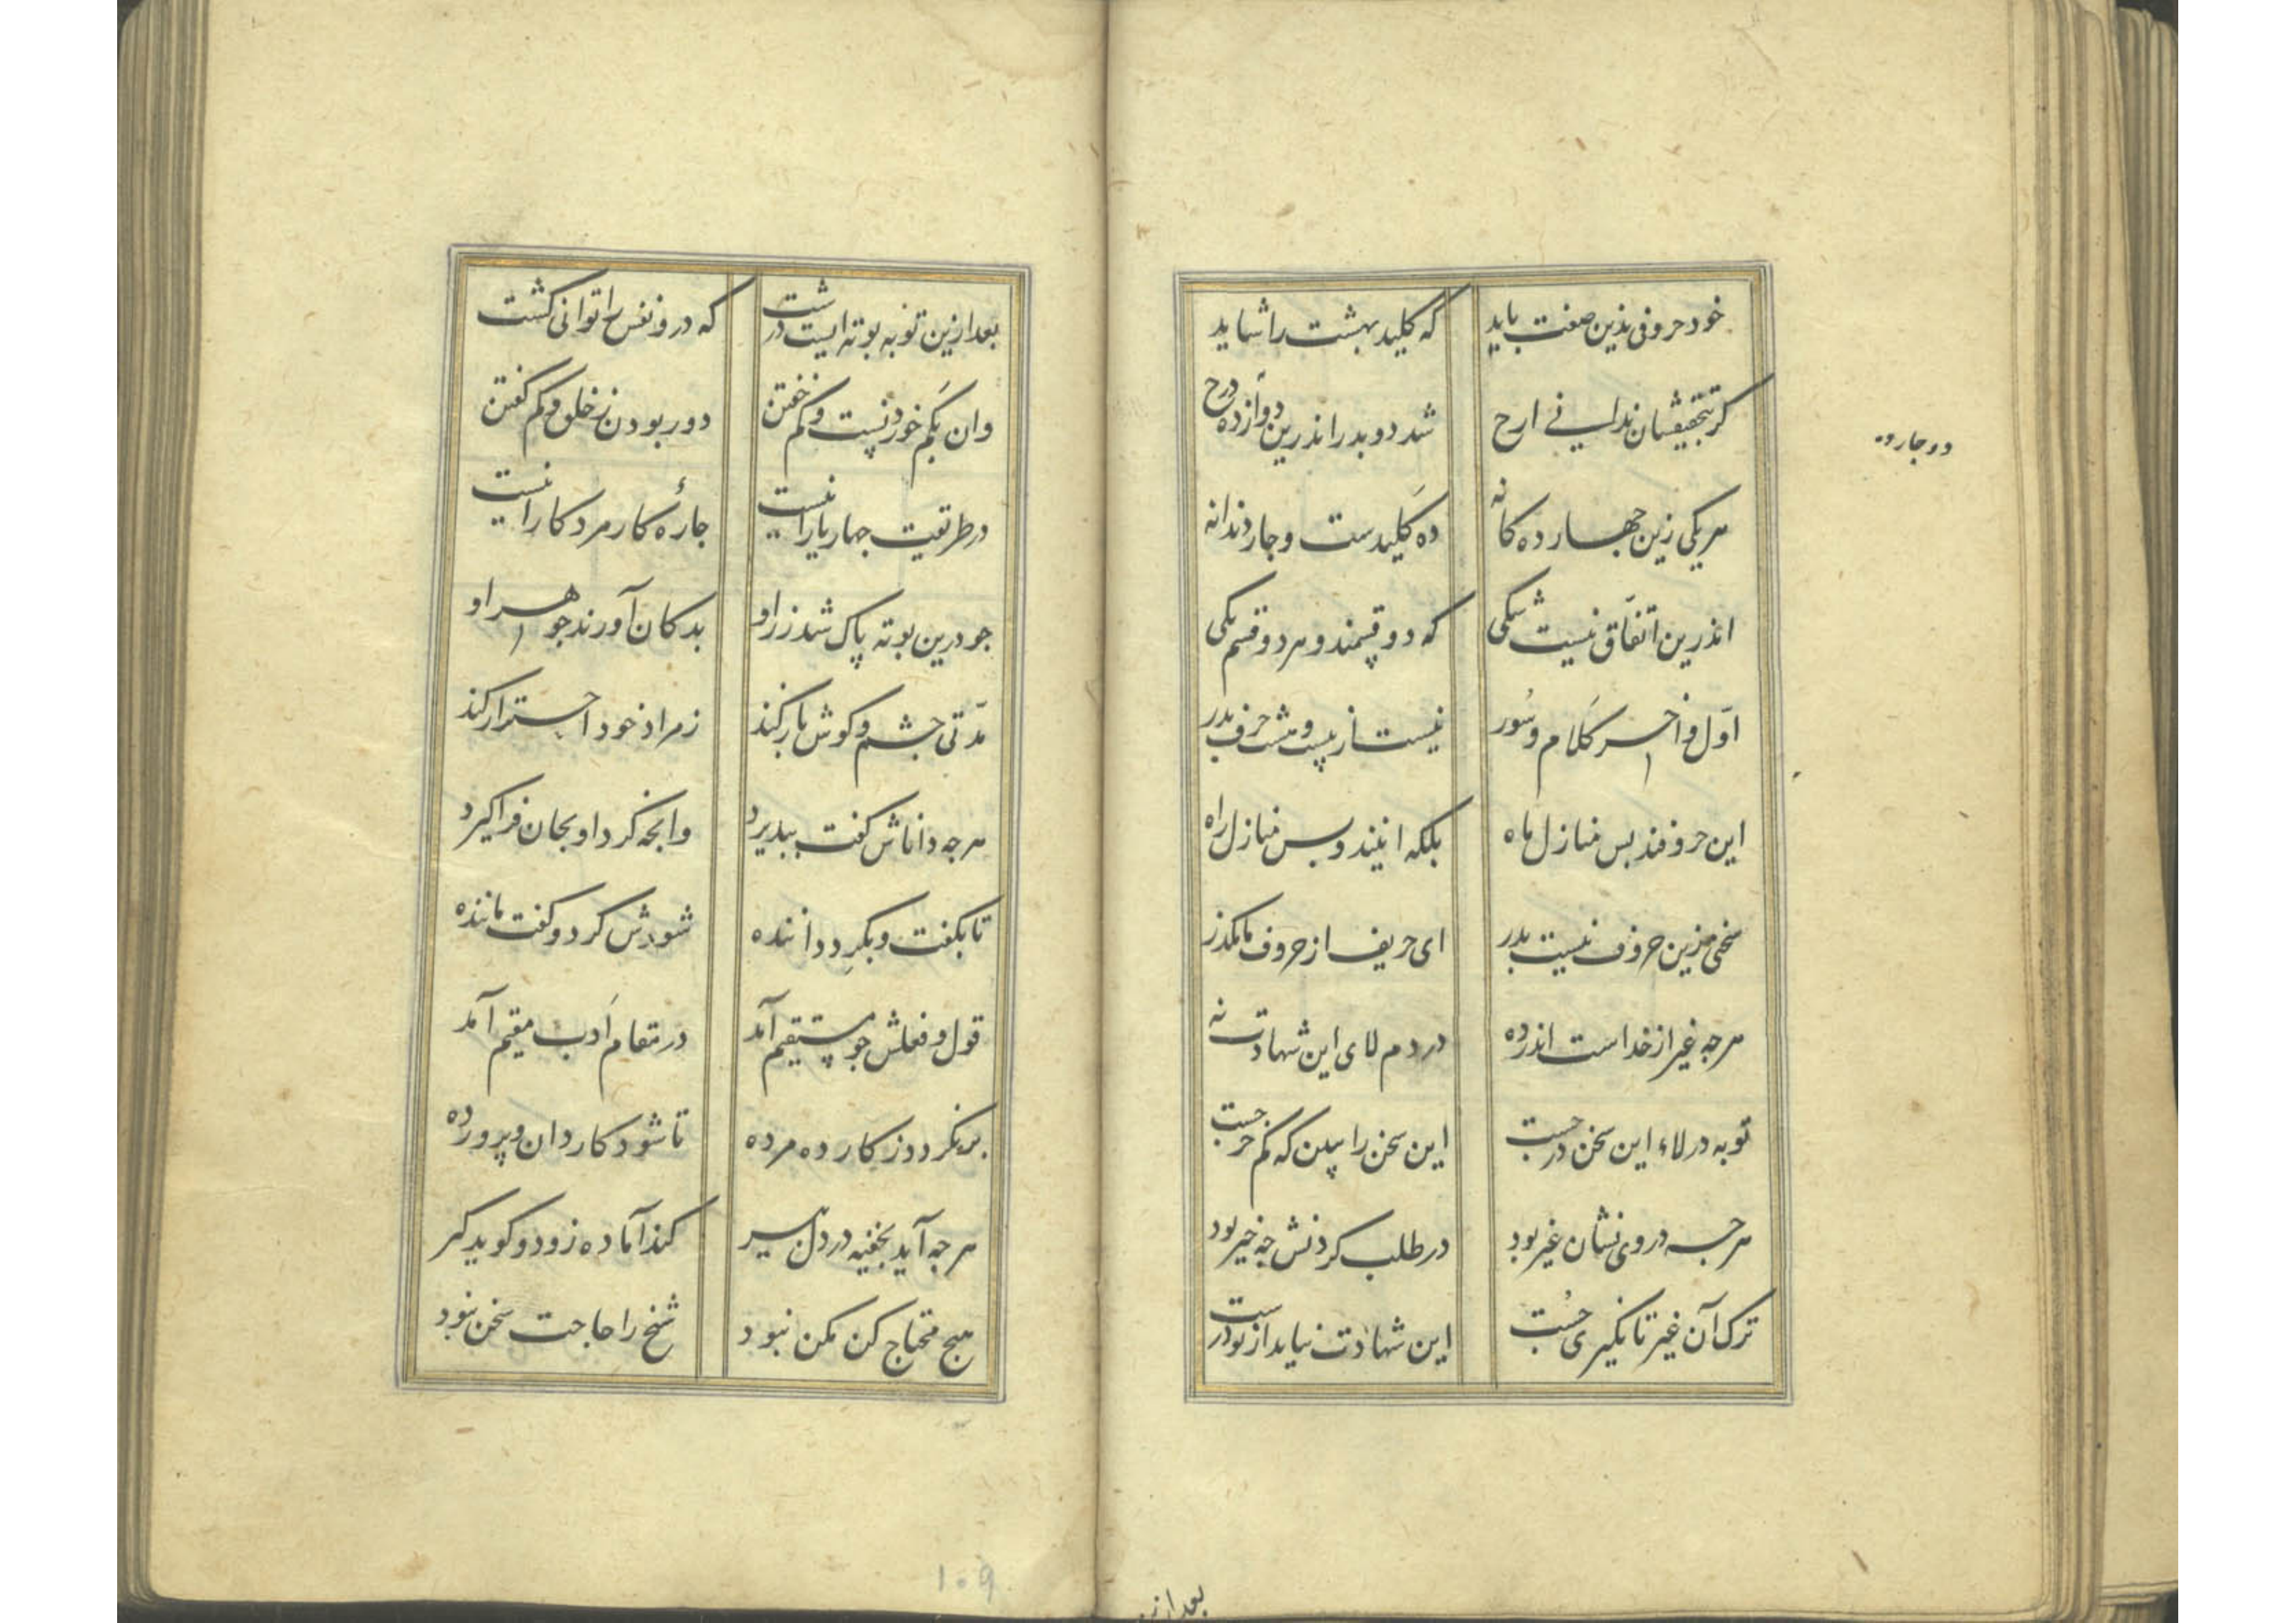 خود حروفی بذین صفت باید
که کلید بهشت را شاید
کر بتحقیقشان ندانی ارح
شد دو بدر اندرین دوازده درح
ده جار ده
هر یکی زین جهار ده کانه
ده کلیدست و جار دندانه
اندرین اتفاق نیست شکی
که دو قسمند و هر دو قسم یکی
اول و اخر کلام و سور
نیست از بیست و هشت حرف بدر
این حروفند بس منازل ماه
بلکه اینند و بس منازل راه
سخنی زین حروف نیست بدر
ای حریف از حروف ما مکذر
هرجه غیر از خداست اندر ده
در دم لای این شهادت نه
توبه در لاء این سخن درجست
این سخن را ببین که کم خرجست
هرجه در وی نشان غیر بود
در طلب کردنش جه خیر بود
ترک آن غیر تا نکیری جُست
این شهادت نیاید از تو درست
بعد ازین
بعد ازین توبه بوته ایست درشت
که درو نفس را توانی کشت
وان بکم خوردنست و کم خفتن
دور بودن ز خلق و کم کفتن
در طریقت جهار یار اینست
جارهٔ کار مرد کار اینست
جو درین بوته پاک شد زر او
بدکان آورند جوهر او
مدتی جشم و کوش باز کند
ز مراد خود احتراز کند
هرجه داناش کفت ببذیرد
وانجه کرد او بجان فرا کیرد
تا بکفت و بکرِد داننده
شودش کرد و کفت ماننده
قول و فعلش جو مستقیم آمد
در مقام اَدب مقیم آمد
برنکردد ز کار ده مرده
تا شود کاردان و پرورده
هرجه آید بخفیه در دل بیر
کند آماده زود و کوید کیر
هیج محتاج کن مکن نبود
شیخ را حاجت سخن نبود
۱۰۹